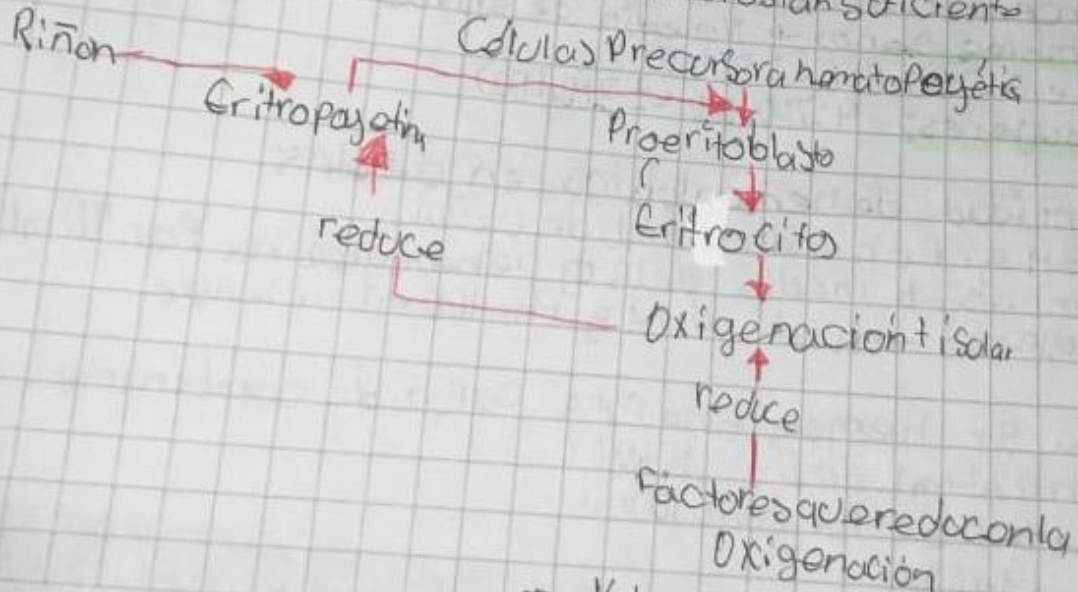 suficiente
Riñon
Células Precursora hematopoyétic
Eritropoyetina
Proeritoblasto
Eritrocitos
reduce
Oxigenación tisular
reduce
Factores que reducen la
Oxigenación